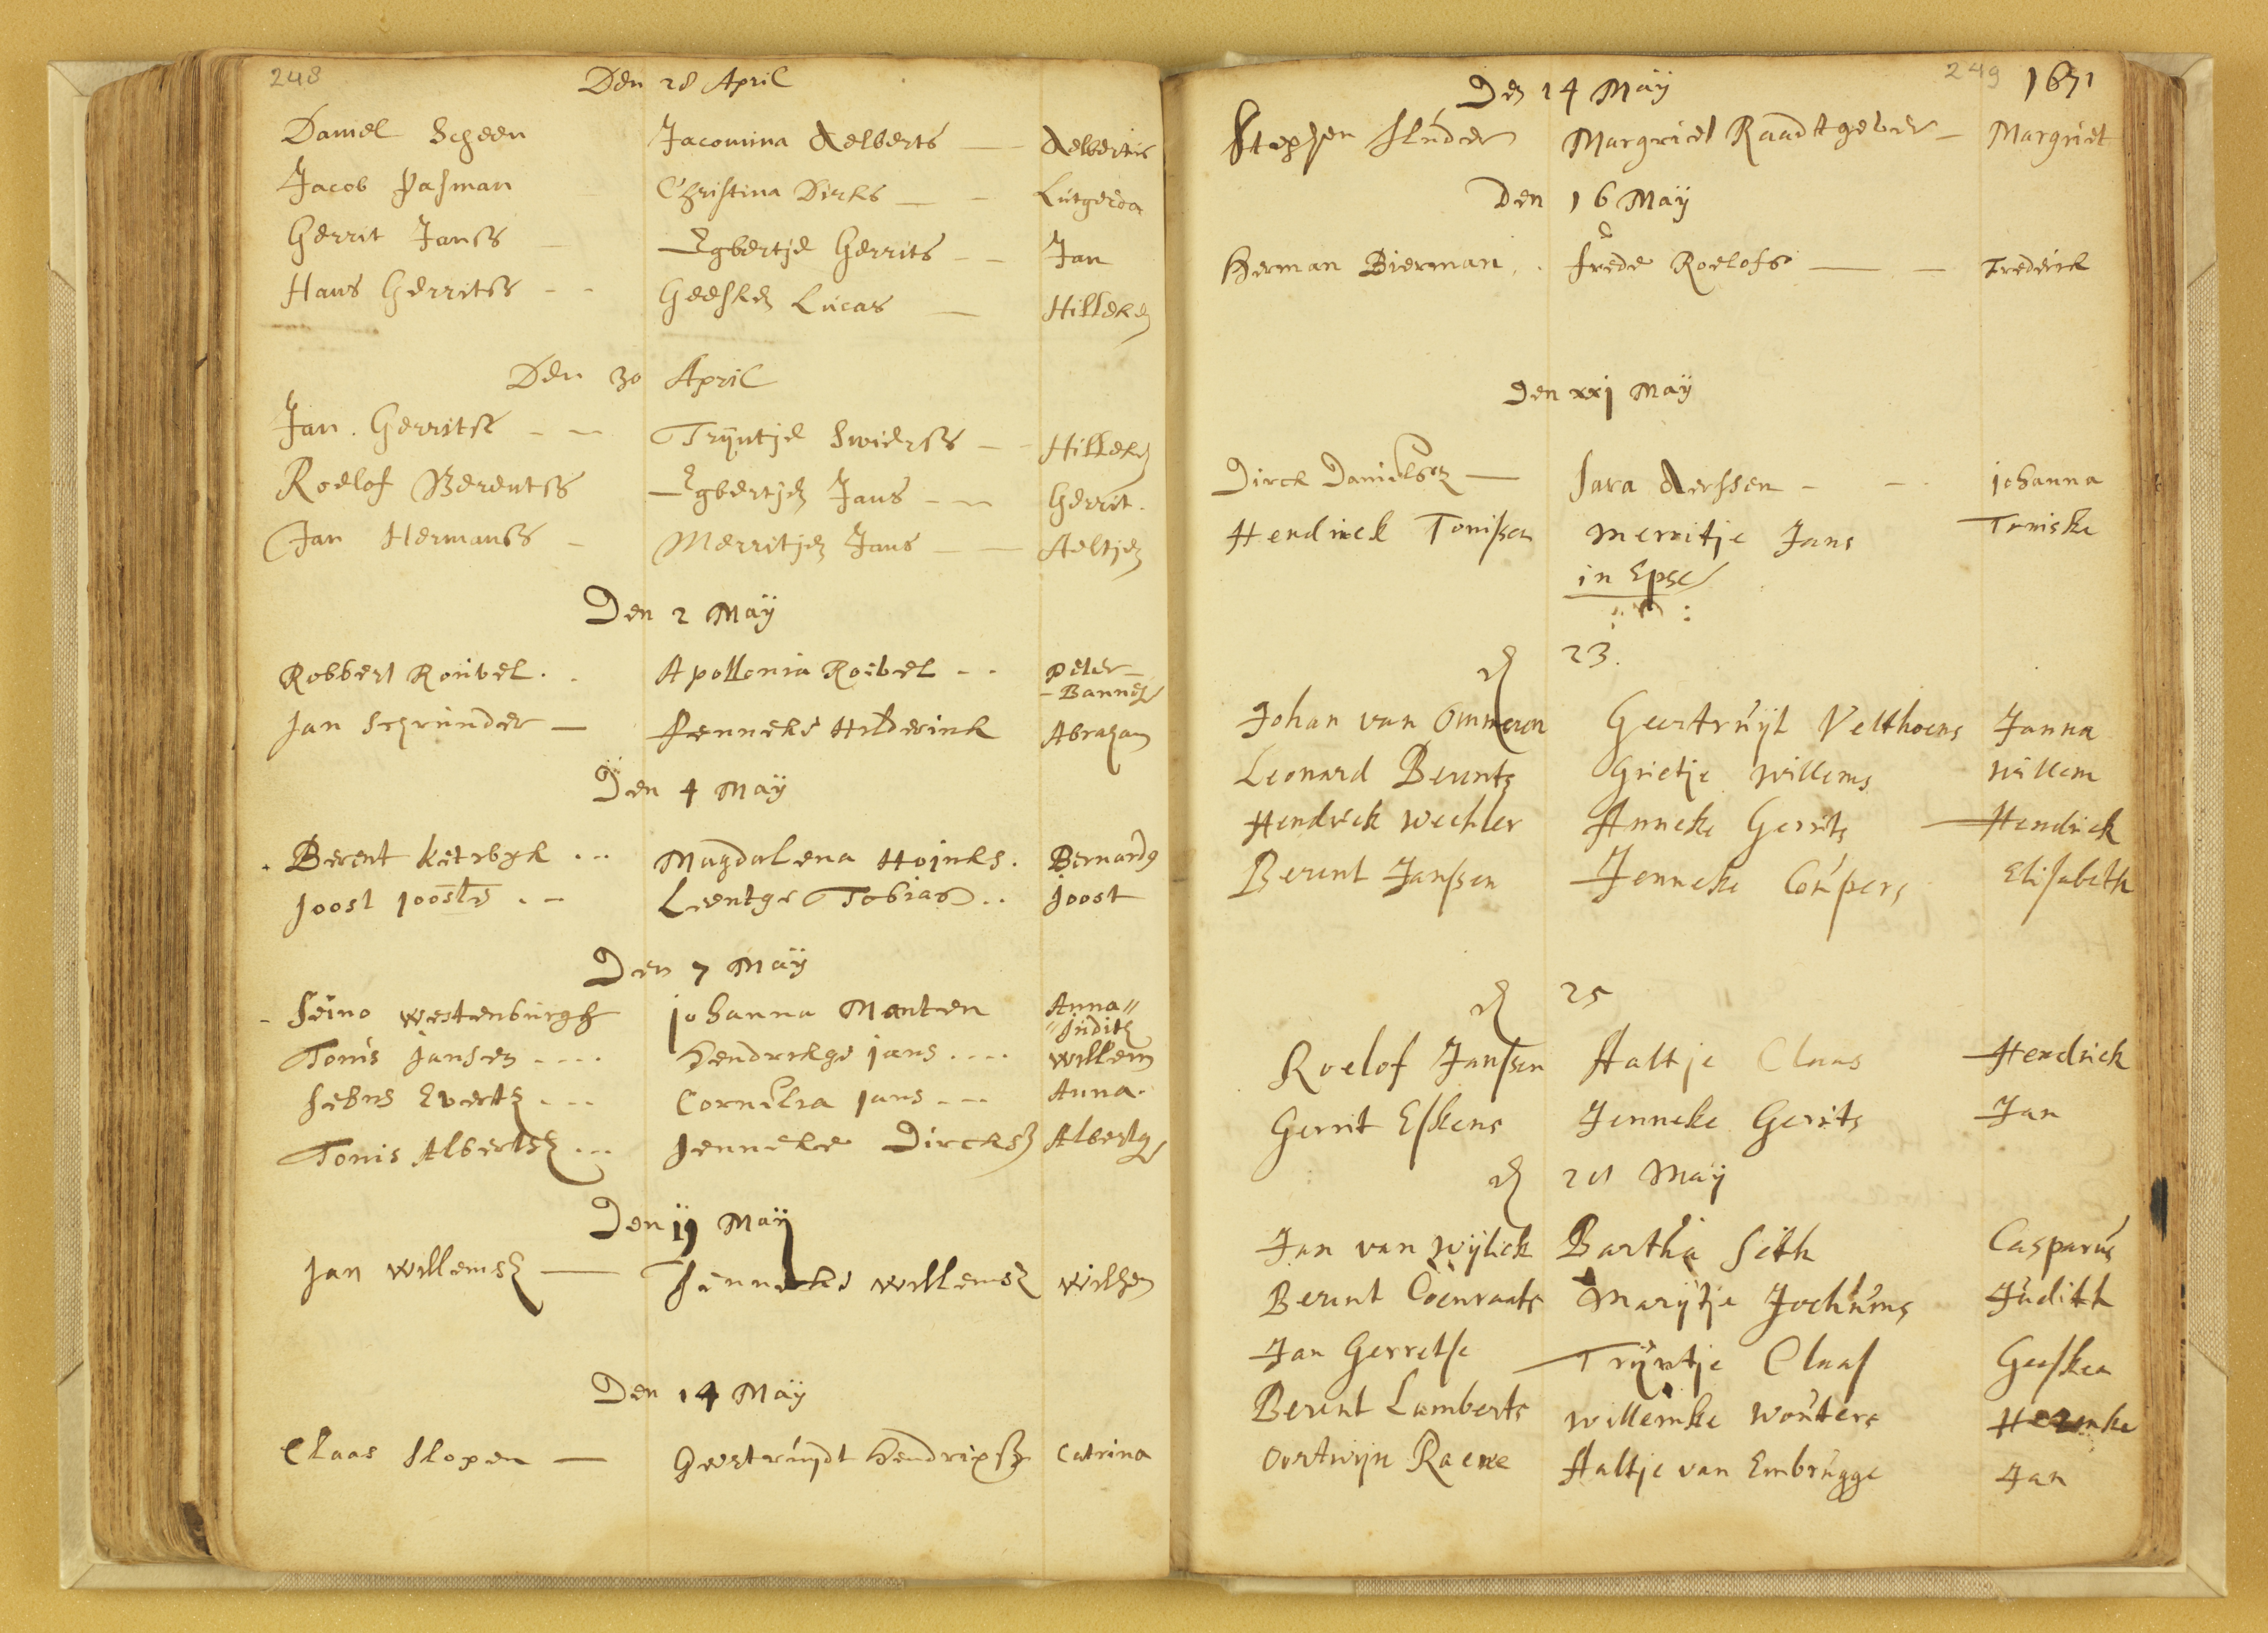 248
Den 28 April
Daniel Scheen Jacomina Aelberts — Aelbertus
Jacob Pasman Christina Dirks — - Lutgerda
Gerrit Janss - Egbertje Gerrits - - Jan
Hans Gerritss - - Geesken Lucas — Hilleken
Den 30 April
Jan Gerritse - - Trijntje Swierss - - Hilleken
Roelof Berentss Egbertjen Jans - - Gerrit.
Jan Hermanss - Merritjen Jans - - Aeltjen
Den 2 Maÿ
Robbert Roubel . . Apollonia Roebel - - Peter -
- Bannes
Jan Schrunder — Jenneke Hilderink Abraham
Den 4 Maÿ
Berent Ketrbyk ... Magdalena Hojnks . Bernardus
Joost Joosts . - Leentge Tobias .. Joost
Den 7 Maÿ
Seino Westenburgh Johanna Manten Anna "
" Judith
Tonis Jansen .... Hendrikge Jans .... Willem
Evertz ... Cornelia Jans ... Anna.
Tonis Albertsz ... Jenneke Dircksz Albertus
Den Maÿ
Jan Willemsz — Jenneke Willemsz Willem
Den 14 Maÿ
Claas Slopen — Geertruijdt Hendrixsz Catrina
249 1671
Den 14 Maÿ
Stephen Sluder Margriet Raadtgever - Margriet
Den 16 Maÿ
Herman Bierman . . Frede Roelofs — - Frederik
Den xxj Maÿ
Dirck Danielsz — Sara Aerssen - - . Johanna
Hendrick Tonissen Merritje Jans Teuniske
in Epse
d 23.
Johan van Ommeren Geertruijt Velthoens Janna
Leonard Berents Grietje Willems Willem
Hendrick Wechler Anneke Gerrits Hendrick
Berent Janssen Jenneke Coupers Elisabeth
d 25
Roelof Janssen Aaltje Claas Hendrick
Gerrit Eskens Jenneke Gerrits Jan
d 28 Maÿ
Jan van Wijlick Bartha Sith Casparus
Berent Coenraats Marÿtje Jochums Judith
Jan Gerretse Trÿntje Claas Geesken
Berent Lamberts Willemke Wouters Hermke
Oortwijn Raeve Aaltje van Embrugge Jan